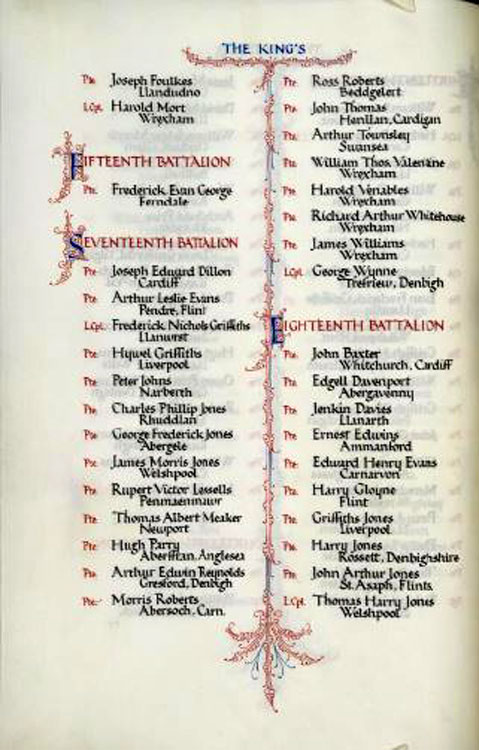 THE KING'S
Pte. Joseph Foulkes
Llandudno
L.Cpl. Harold Mort
Wrexham
FIFTEENTH BATTALION
Pte. Frederick Evan George
Ferndale
SEVENTEENTH BATTALION
Pte. Joseph Edward Dillon
Cardiff
Pte. Arthur Leslie Evans
Pendre, Flint
L.Cpl. Frederick Nichols Griffiths
Llanwrst
Pte. Hywel Griffiths
Liverpool
Pte. Peter Johns
Narberth
Pte. Charles Phillip Jones
Rhuddlan
Pte. George Frederick Jones
Abergele
Pte. James Morris Jones
Welshpool
Pte. Rupert Victor Lessells
Penmaenmawr
Pte. Thomas Albert Meaker
Newport
Pte. Hugh Parry
Aberffran, Anglesea
Pte. Arthur Edwin Reynolds
Gresford, Denbigh
Pte. Morris Roberts
Abersoch, Carn.
Pte. Ross Roberts
Beddgelert
Pte. John Thomas
Henllan, Cardigan
Pte. Arthur Townsley
Swansea
Pte. William Thos. Valentine
Wrexham
Pte. Harold Venables
Wrexham
Pte. Richard Arthur Whitehouse
Wrexham
Pte. James Williams
Wrexham
L.Cpl. George Wynne
Trefriew, Denbigh
EIGHTEENTH BATTALION
Pte. John Baxter
Whitchurch, Cardiff
Pte. Edgell Davenport
Abergavenny
Pte. Jenkin Davies
Llanarth
Pte. Ernest Edwins
Ammanford
Pte. Edward Henry Evans
Carnarvon
Pte. Harry Gloyne
Flint
Pte. Griffiths Jones
Liverpool
Pte. Harry Jones
Rossett, Denbighshire
Pte. John Arthur Jones
St. Asaph, Flints.
L.Cpl. Thomas Harry Jones
Welshpool